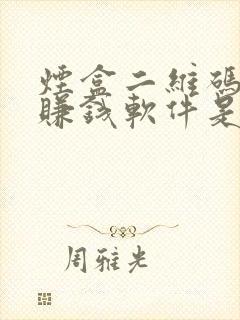 煙盒二維碼
賺錢軟件是
周雅光